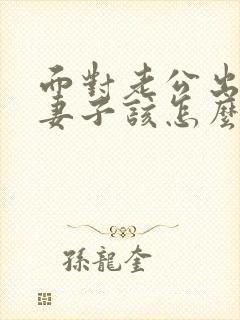 面對老公出
妻子該怎麼
孫龍奎